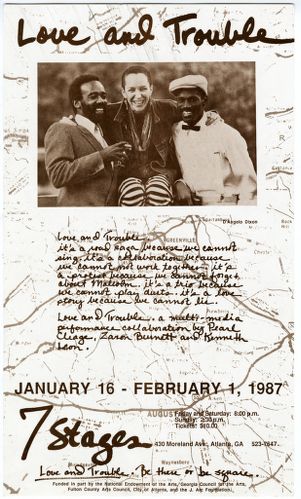 Love and Trouble
D'Angelo Dixon
Love and Trouble
it's a road saga because we cannot
sing. it's a collaboration because
we cannot not work together. it's
a protest because we cannot forget
about Malcolm. it's a trio because
we cannot play duets. it's a love
story because we cannot lie.
GREENVILLE
Love and Trouble. a multi-media
performance collaboration by Pearl
Cleage, Zaron Burnett and Kenneth
Leon.
JANUARY 16 - FEBRUARY 1, 1987
AUGUS
Friday and Saturday: 8:00 p.m.
Sunday: 2:30 p.m.
Tickets: $10.00
7 Stages
430 Moreland Ave., Atlanta, GA 523-7647.
Waynesboro
Love and Trouble. Be there or be square.
Funded in part by the National Endowment of the Arts, Georgia Council for the Arts,
Fulton County Arts Council, City of Atlanta, and the J. Air Foundation.